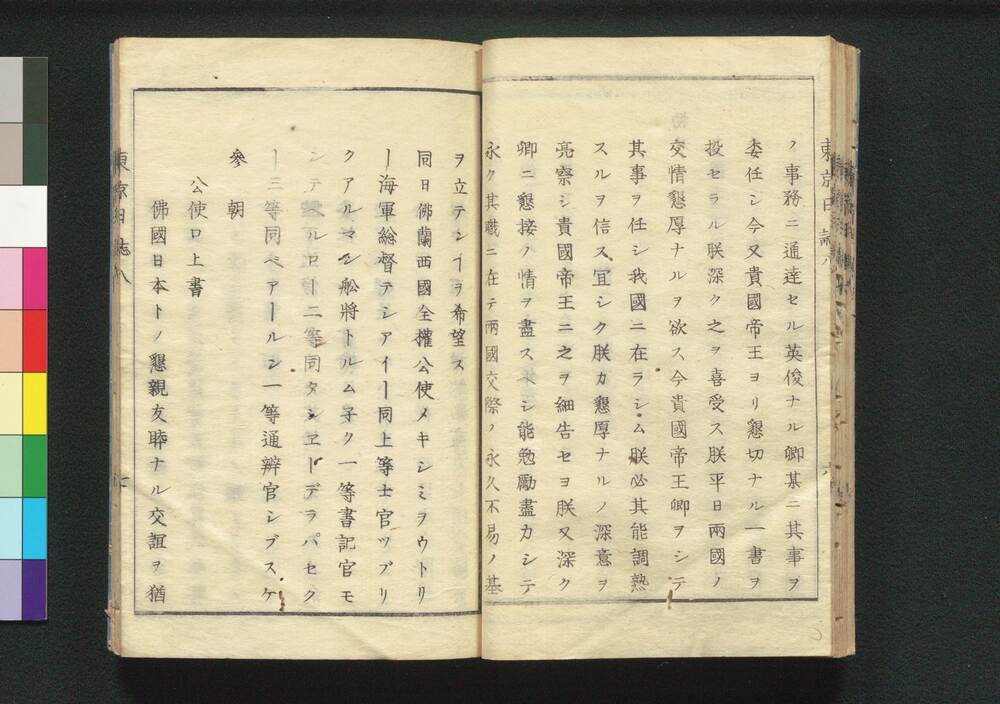 東京日誌八
ノ事務ニ通達セル英俊ナル卿某ニ其事ヲ
委任シ今又貴國帝王ヨリ懇切ナル一書ヲ
投セラル朕深ク之ヲ喜受ス朕平日兩國ノ
交情懇厚ナルヲ欲ス今貴國帝王卿ヲシテ
其事ヲ任シ我國ニ在ラシム朕必其能調熟
スルヲ信ス宜シク朕カ懇厚ナルノ深意ヲ
亮察シ貴國帝王ニ之ヲ細告セヨ朕又深ク
卿ニ懇接ノ情ヲ盡スヘシ能勉勵盡力シテ
永ク其職ニ在テ兩國交際ノ永久不易ノ基
ヲ立テンヿヲ希望ス
同日佛蘭西國全權公使メキシミヲウトリ
ー海軍総督テシアイー同上等士官ツブリ
クアルマン舩將トルム子ク一等書記官モ
ンテベルロー二等同タシヱーデラパセク
ー三等同ベアールン一等通辨官シブスケ
參朝
公使口上書
佛國日本トノ懇親友睦ナル交誼ヲ猶
東京日誌八
七